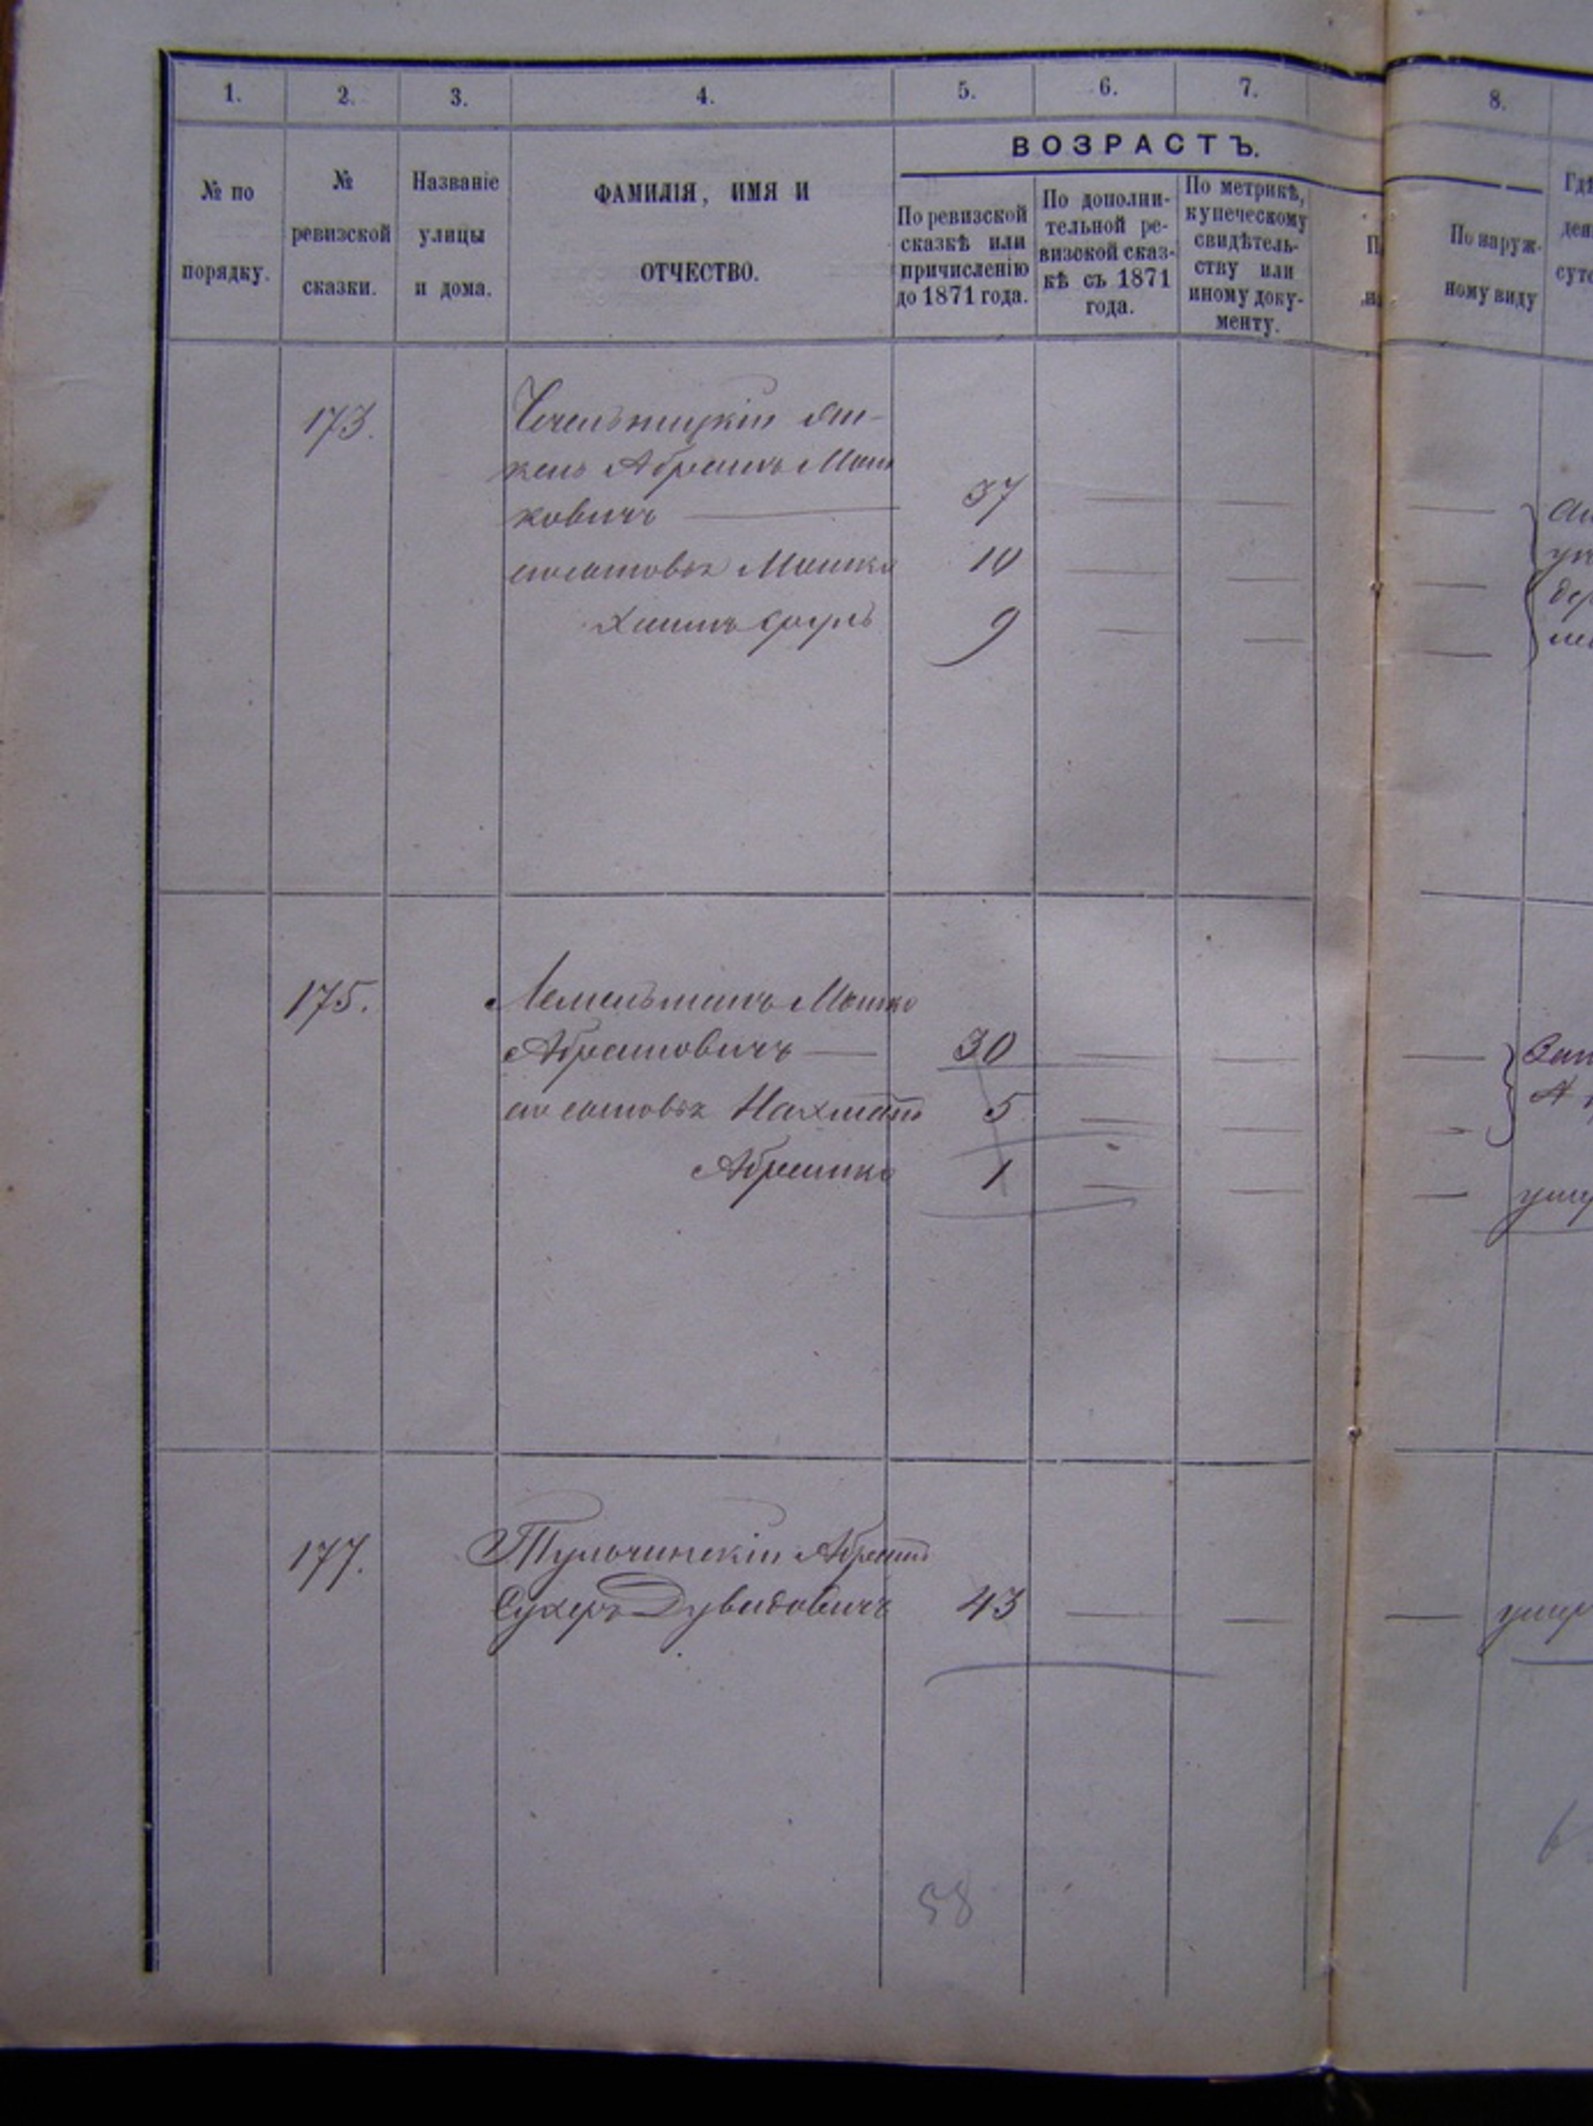 1. 2. 3. 4. 5. 6. 7. 8.
ВОЗРАСТЪ.
№ по
порядку.
№
ревизской
сказки.
Названіе
улицы
и дома.
ФАМИЛІЯ, ИМЯ И
ОТЧЕСТВО.
По ревизской
сказкѣ или
причисленію
до 1871 года.
По дополни-
тельной ре-
визской сказ-
кѣ съ 1871
года.
По метрикѣ,
купеческому
свидѣтель-
ству или
иному доку-
менту.
По наруж-
ному виду
173. Чечельницкій
Абрамъ Мош
ковичъ — 37 — — —
сыновья Мошко 10 — — —
Хаимъ Сруль 9 — — —
175. Лемельманъ Мошко
Абрамовичъ — 30 — — —
сыновья Нахманъ 5 — — —
Абрамко 1 — — —
177. Тульчинскій Абрамъ
Сухеръ Дувидовичъ 43 — — —
58